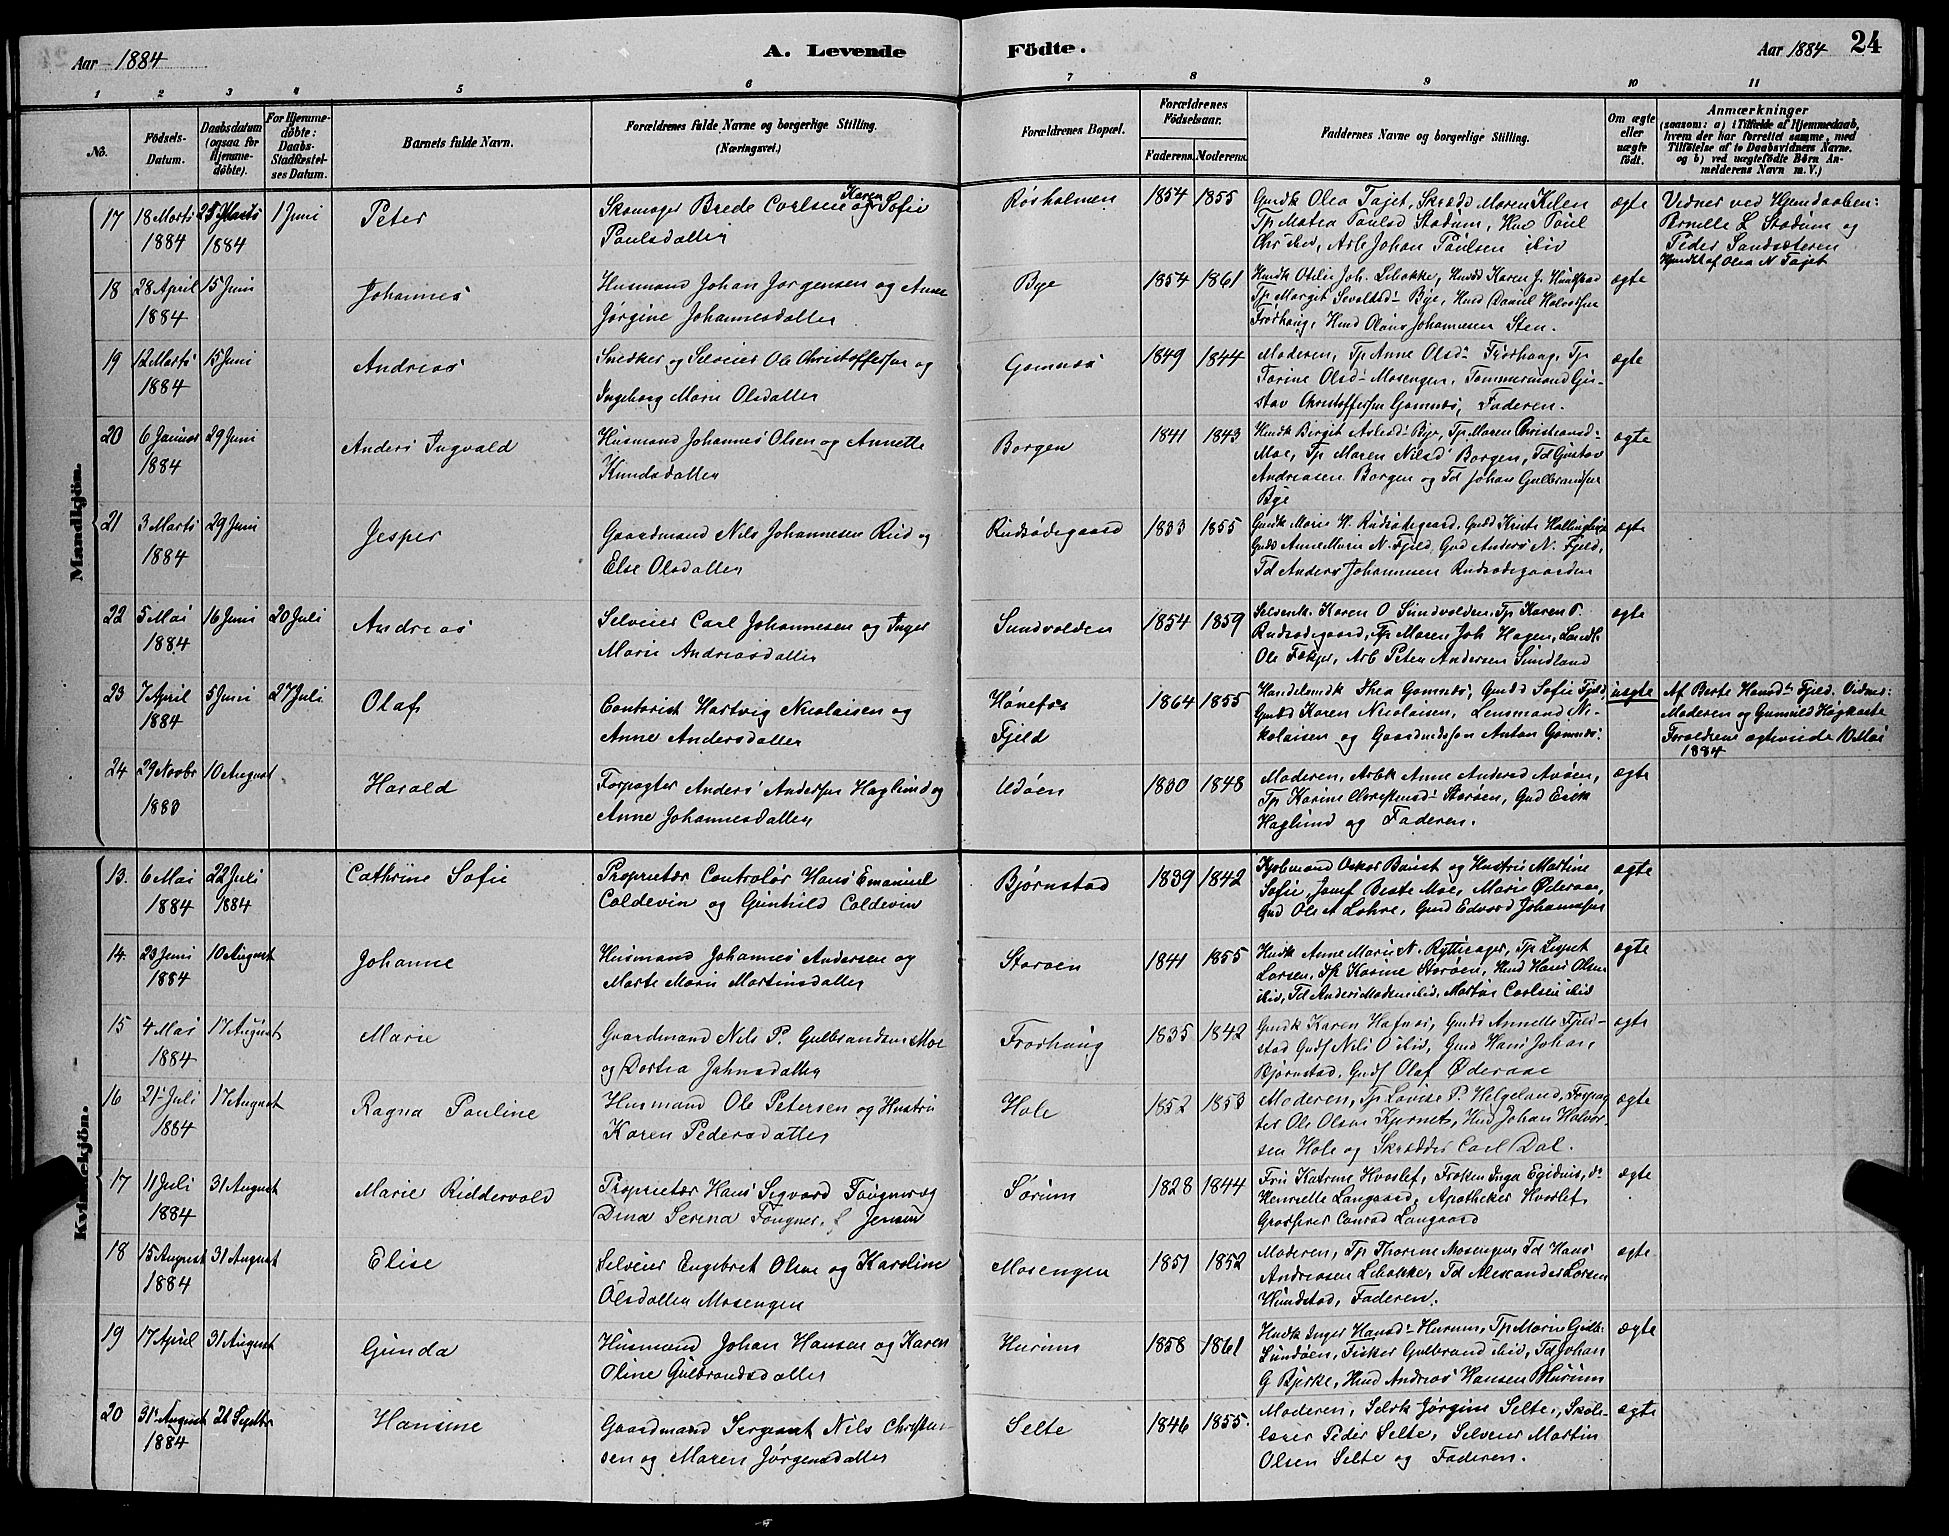 Aar 1884
A. Levende
Födte.
Aar 1884
24
1 2 3 4 5 6 7 8 9 10 11
No.
Födsels-Datum.
Daabsdatum (ogsaa for Hjemme-døbte).
For Hjemme-døbte: Daabs-Stadfæstel-ses Datum.
Barnets fulde Navn.
Forældrenes fulde Navne og borgerlige Stilling. (Næringsvei.)
Forældrenes Bopæl.
Forældrenes Födselsaar.
Faderens. Moderens.
Faddernes Navne og borgerlige Stilling.
Om ægte eller uægte födt.
Anmærkninger
(saasom: a) i Tilfælde af Hjemmedaab,
hvem der har forrettet samme, med
Tilföielse af to Daabsvidners Navne.
og b) ved uægtefödte Börn An-
melderens Navn m. V.)
Mandkjön.
17 18 Marts 1884 25 Marts 1884 1 Juni Peter
Skomager Brede Carlsen og Karen Sofie
Paulsdatter
Røsholmen 1854 1855
Gmdk Olea Tajet, Skrædd Maren Kilen
Tp Matea Paulsd Stadum, Hmd Poul
Chr ibid, Arb Johan Paulsen ibid
ægte
Vidner ved Hjemdaaben:
Pernelle L Stadum og
Peder Sandsæteren
Hjmdbt af Olea N Tajet
18 28 April 1884 15 Juni Johannes
Husmand Johan Jørgensen og Anne
Jørgine Johannesdatter
Bye 1854 1861
Hmdk Otilie Joh. Libakke, Hmdd Karen J. Hundstad
Tp Margit Sevaldsd Bye, Hmd Daniel Halvorsen
Frorhaug, Hmd Olaus Johannesen Sten.
ægte
19 12 Marts 1884 15 Juni Andreas
Snedker og Selveier Ole Christoffersen og
Ingeborg Marie Olsdatter
Gomnæs 1849 1844
Moderen, Tp Anne Olsd Frorhaug, Tp
Torine Olsd Mosengen, Tømmermand Gu-
stav Christoffersen Gomnæs, Faderen.
ægte
20 6 Januar 1884 29 Juni Anders Ingvald
Husmand Johannes Olsen og Annette
Knudsdatter
Borgen 1841 1843
Hmdk Birgit Aslesd Bye, Tp Maren Christiansd
Moe, Tp Maren Nilsd Borgen, Td Gustav
Andreasen Borgen og Td Johan Gulbrandsen
Bye
ægte
21 3 Marts 1884 29 Juni Jesper
Gaardmand Nils Johannesen Rud og
Else Olsdatter
Rudsødegaard 1833 1855
Gmdk Marie H. Rudsødegaard, Gmdd Kristi Hallingby
Gmdd Anne Marie N. Fjeld, Gmd Anders N. Fjeld,
Td Anders Johannesen Rudsødegaarden
ægte
22 5 Mai 1884 16 Juni 20 Juli Andreas
Selveier Carl Johannesen og Inger
Marie Andreasdatter
Sundvolden 1854 1859
Selveierk. Karen O Sundvolden, Tp Karen P.
Rudsødegaard, Tp Maren Joh Hagen, Landh.
Ole Fokjer, Arb Peter Andersen Sundland
ægte
23 7 April 1884 5 Juni 27 Juli Olaf
Contorist Hartvig Nicolaisen og
Anne Andersdatter
Hønefos
Fjeld
1864 1855
Handelsmdk Thea Gomnæs, Gmdd Sofie Fjeld
Gmdd Karen Nicolaisen, Lensmand Ni-
kolaisen og Gaardmdssøn Anton Gomnæs.
uægte
Af Berte Hansd Fjeld. Vidner:
Moderen og Gunhild Høgkaste
Foreldrene ægteviede 10 Mai
1884
24 29 Novbr 1883 10 August Harald
Forpagter Anders Andersen Haglund og
Anne Johannesdatter
Utøen 1830 1848
Moderen, Arbk Anne Andersd Avøen,
Tp Karine Christensd Storøen, Gmd Erik
Haglund og Faderen.
ægte
Kvindekjön.
13. 6 Mai 1884 22 Juli 1884 Cathrine Sofie
Proprietær Controlør Hans Emanuel
Coldevin og Gunhild Coldevin
Bjørnstad 1839 1842
Kjøbmand Oskar Baust og Hustru Martine
Sofie, Jomf Beate Moe, Marie Øderaa,
Gmd Ole A Lohre, Gmd Edvard Johannesen
ægte
14. 23 Juni 1884 10 August Johanne
Husmand Johannes Andersen og
Marte Marie Martinsdatter
Storøen 1841 1855
Hmdk Anne Marie N. Rytterager, Tp Lispet
Larsen, Tp Karine Storøen, Hmd Hans Olsen
ibid, Td Anders Madsen ibid, Martin Carlsen ibid
ægte
15 4 Mai 1884 17 August Marie
Gaardmand Nils P. Gulbrandsen Moe
og Dortea Jahnsdatter
Frorhaug 1835 1842
Gmdk Karen Hafnor, Gmdd Annette Fjeld-
stad Gmds Nils O ibid, Gmd Hans Johan
Bjørnstad, Gmds Olaf Øderaae
ægte
16 21 Juli 1884 17 August Ragna Pauline
Husmand Ole Petersen og Hustru
Karen Pedersdatter
Hole 1852 1853
Moderen, Tp Lovise P. Helgeland, Forpag-
ter Ole Olsen Kjernet, Hmd Johan Halvor-
sen Hole og Skrædder Carl Dal.
ægte
17 11 Juli 1884 31 August Marie Riddervold
Proprietær Hans Sigvard Fougner og
Dina Serina Fougner, f. Jensen
Sørum 1828 1844
Fru Katrine Hvoslef, Frøken Inga Egidius, do
Henriette Langaard, Apotheker Hvoslef,
Grosserer Conrad Langaard
ægte
18 15 August 1884 31 August Elise
Selveier Engebret Olsen og Karoline
Olsdatter Mosengen
Mosengen 1851 1852
Moderen, Tp Thorine Mosengen, Td Hans
Andreasen Libakke, Td Alexander Larsen
Hundstad, Faderen.
ægte
19 17 April 31 August Gunda
Husmand Johan Hansen og Karen
Oline Gulbrandsdatter
Hurum 1858 1861
Hmdk Inger Hansd Hurum, Tp Marie Gulb.
Sundøen, Fisker Gulbrand ibid, Td Johan
G Bjerke, Hmd Andreas Hansen Hurum
ægte
20 31 August 1884 21 Septbr Hansine
Gaardmand Sergeant Nils Christian-
sen og Maren Jørgensdatter
Selte 1846 1855.
Moderen, Selvk Jørgine Selte, Skol-
lærer Peder Selte, Selveier Martin
Olsen Selte og Faderen.
ægte